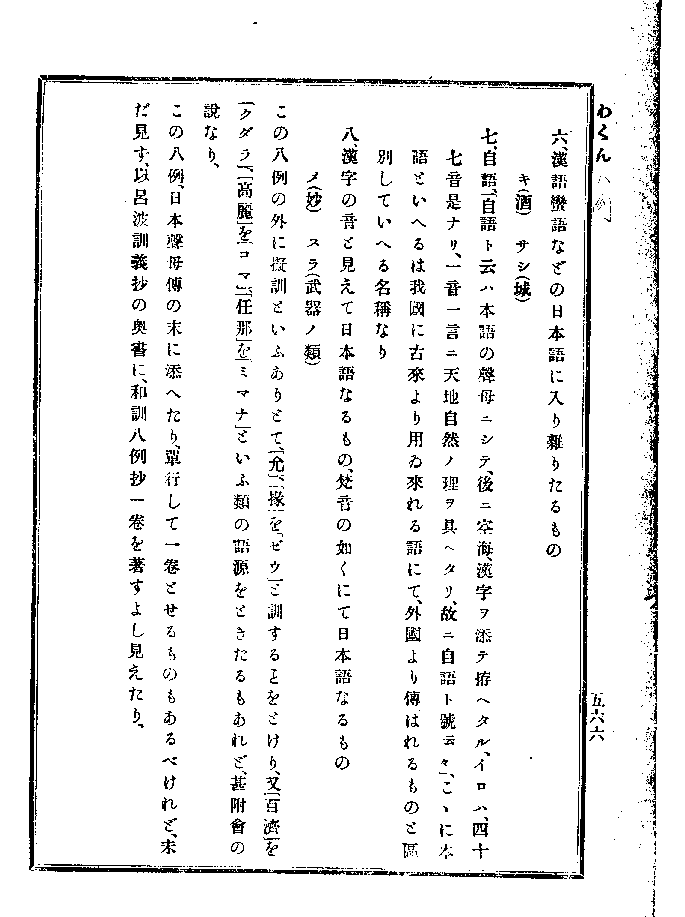 わくん八例
六、漢語蠻語などの日本語に入り雜りたるもの
キ(酒) サシ(城)
七、自語、「自語ト云ハ本語の聲母ニシテ、後ニ空海、漢字ヲ添テ拵ヘタル、イロハ、四十
七音是ナリ、一音一言ニ天地自然ノ理ヲ具ヘタリ、故ニ自語ト號云々」、こゝに本
語といへるは我國に古來より用ゐ來れる語にて、外國より傳はれるものと區
別していへる名稱なり
八、漢字の音と見えて日本語なるもの、梵音の如くにて日本語なるもの
メ(妙) スラ(武器ノ類)
この八例の外に擬訓といふありとて、「允」「掾」を「ゼウ」と訓することをとけり、又「百濟」を
「クダラ」、「高麗」を「コマ」、「任那」を「ミマナ」といふ類の語源をときたるもあれど、甚附會の
說なり、
この八例、日本聲母傳の末に添へたり、單行して一卷とせるものもあるべけれど、未
だ見ず、以呂波訓義抄の奧書に、和訓八例抄一卷を著すよし見えたり、
五六六